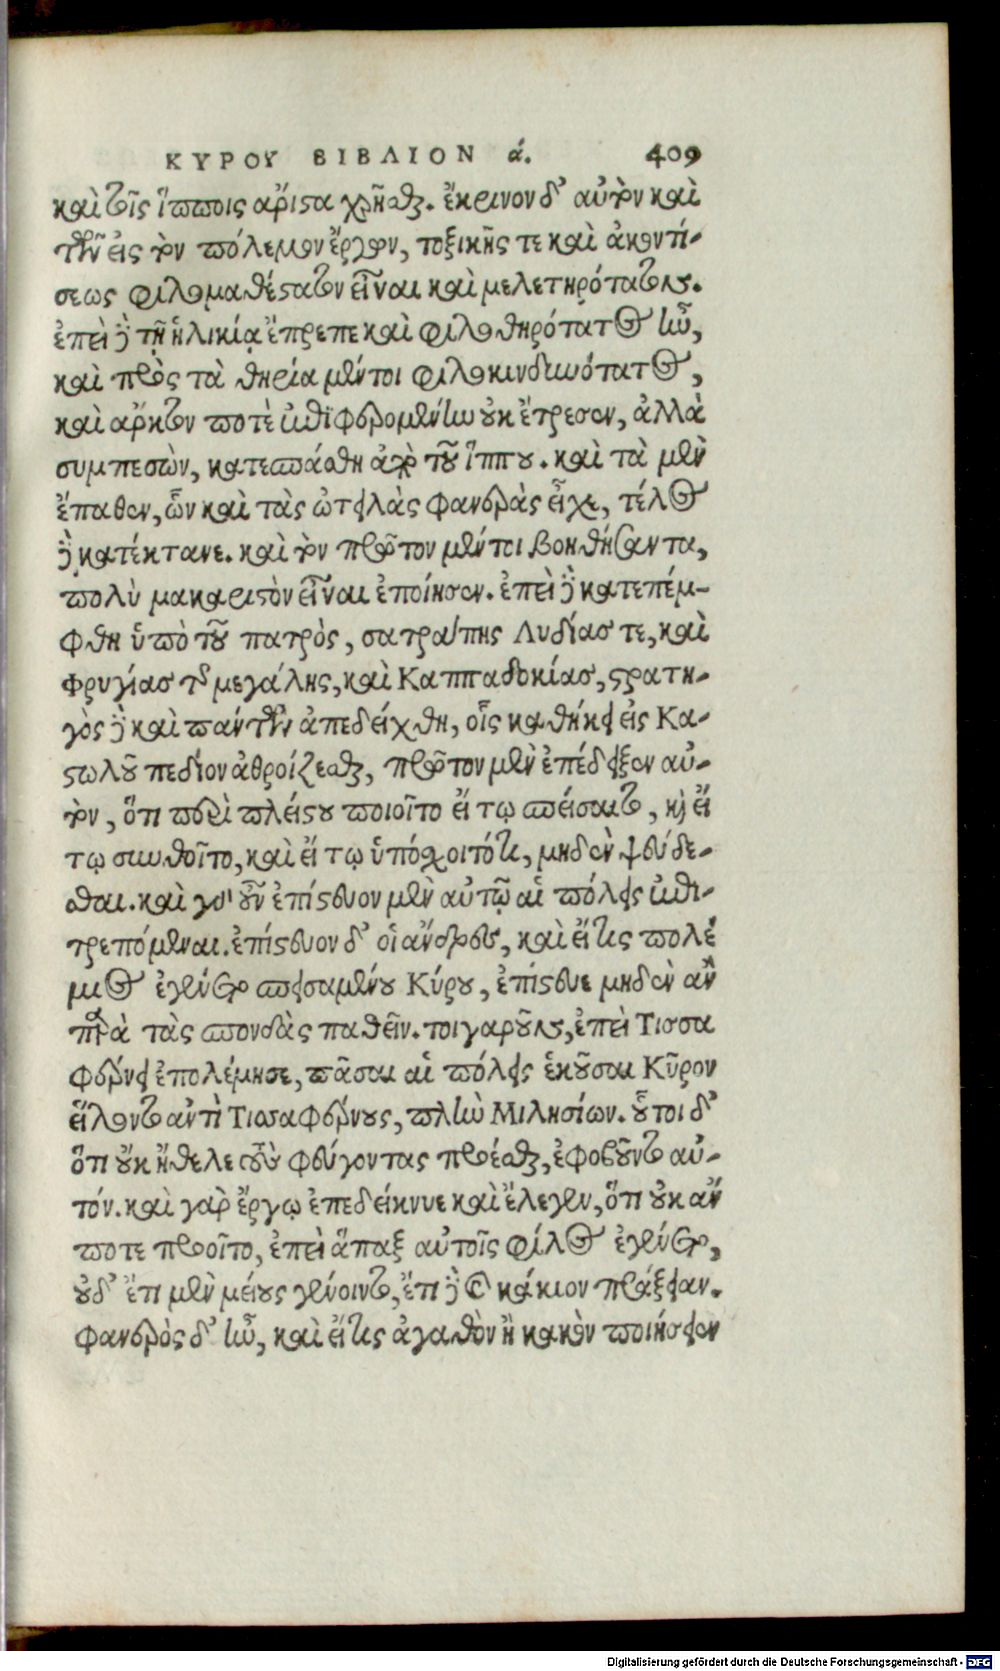 ΚΥΡΟΥ ΒΙΒΛΙΟΝ ά. 409
καὶ τοῖς ἵπποις ἄριστα χρῆσθαι. ἔκρινον δ' αὐτὸν καὶ
τῶν εἰς τὸν πόλεμον ἔργων, τοξικῆς τε καὶ ἀκοντί-
σεως φιλομαθέστατον εἶναι καὶ μελετηρότατον.
ἐπεὶ δὲ τῇ ἡλικίᾳ ἔπρεπε καὶ φιλοθηρότατος ἦν,
καὶ πρὸς τὰ θηρία μέντοι φιλοκινδυνότατος,
καὶ ἄρκτον ποτὲ ἐπιφερομένην οὐκ ἔτρεσεν, ἀλλὰ
συμπεσὼν, κατεσπάσθη ἀπὸ τοῦ ἵππου. καὶ τὰ μὲν
ἔπαθεν, ὧν καὶ τὰς ὠτειλὰς φανερὰς εἶχε, τέλος
δὲ κατέκτανε. καὶ τὸν πρῶτον μέντοι βοηθήσαντα,
πολὺ μακαριστὸν εἶναι ἐποίησεν. ἐπεὶ δὲ κατεπέμ-
φθη ὑπὸ τοῦ πατρὸς, σατράπης Λυδίας τε, καὶ
Φρυγίας τῆς μεγάλης, καὶ Καππαδοκίας, στρατη-
γὸς δὲ καὶ πάντων ἀπεδείχθη, οἷς καθήκει εἰς Κα-
στωλοῦ πεδίον ἀθροίζεσθαι, πρῶτον μὲν ἐπέδειξεν αὑ-
τὸν, ὅτι περὶ πλείστου ποιοῖτο εἴ τῳ σπείσαιτο, καὶ εἴ
τῳ συνθοῖτο, καὶ εἴ τῳ ὑπόσχοιτό τι, μηδὲν ψεύδε-
σθαι. καὶ γὰρ οὖν ἐπίστευον μὲν αὐτῷ αἱ πόλεις ἐπι-
τρεπόμεναι. ἐπίστευον δ' οἱ ἄνδρες, καὶ εἴ τις πολέ
μιος ἐγένετο σπεισαμένου Κύρου, ἐπίστευε μηδὲν ἂν
παρὰ τὰς σπονδὰς παθεῖν. τοιγαροῦν, ἐπεὶ Τισσα
φέρνει ἐπολέμησε, πᾶσαι αἱ πόλεις ἑκοῦσαι Κῦρον
εἵλοντο ἀντὶ Τισσαφέρνους, πλὴν Μιλησίων. οὗτοι δ'
ὅτι οὐκ ἤθελε τοὺς φεύγοντας προέσθαι, ἐφοβοῦντο αὐ-
τόν. καὶ γὰρ ἔργῳ ἐπεδείκνυε καὶ ἔλεγεν, ὅτι οὐκ ἄν
ποτε προοῖτο, ἐπεὶ ἅπαξ αὐτοῖς φίλος ἐγένετο,
οὐδ' ἔτι μὲν μείους γένοιντο, ἔτι δὲ καὶ κάκιον πράξειαν.
φανερὸς δ' ἦν, καὶ εἴ τις ἀγαθὸν ἢ κακὸν ποιήσειεν
Digitalisierung gefördert durch die Deutsche Forschungsgemeinschaft - DFG